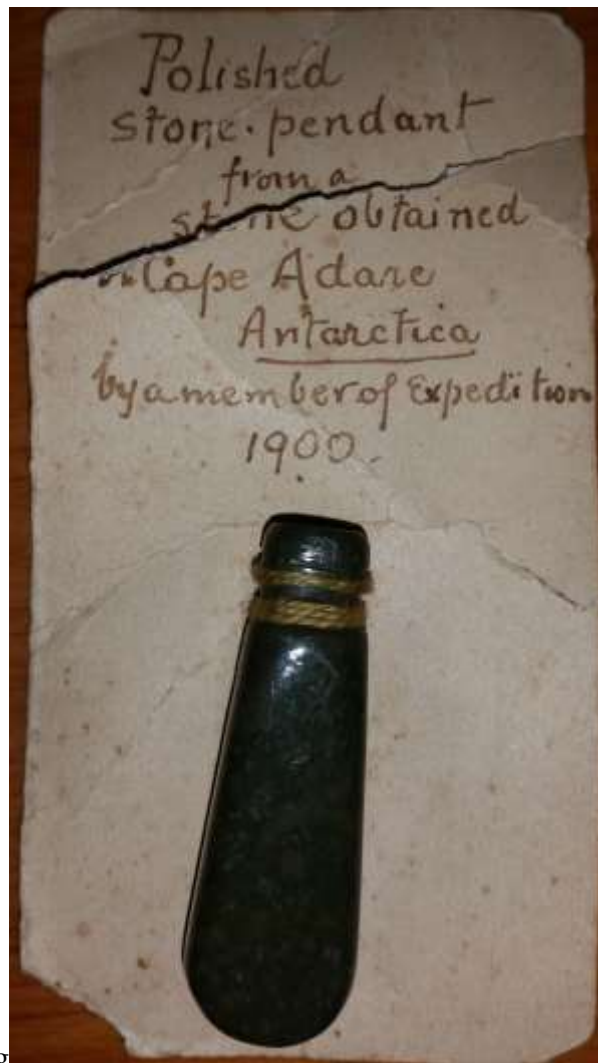 Polished
stone. pendant
from a
stone obtained
Cape Adare
Antarctica
by a member of Expedition
1900.